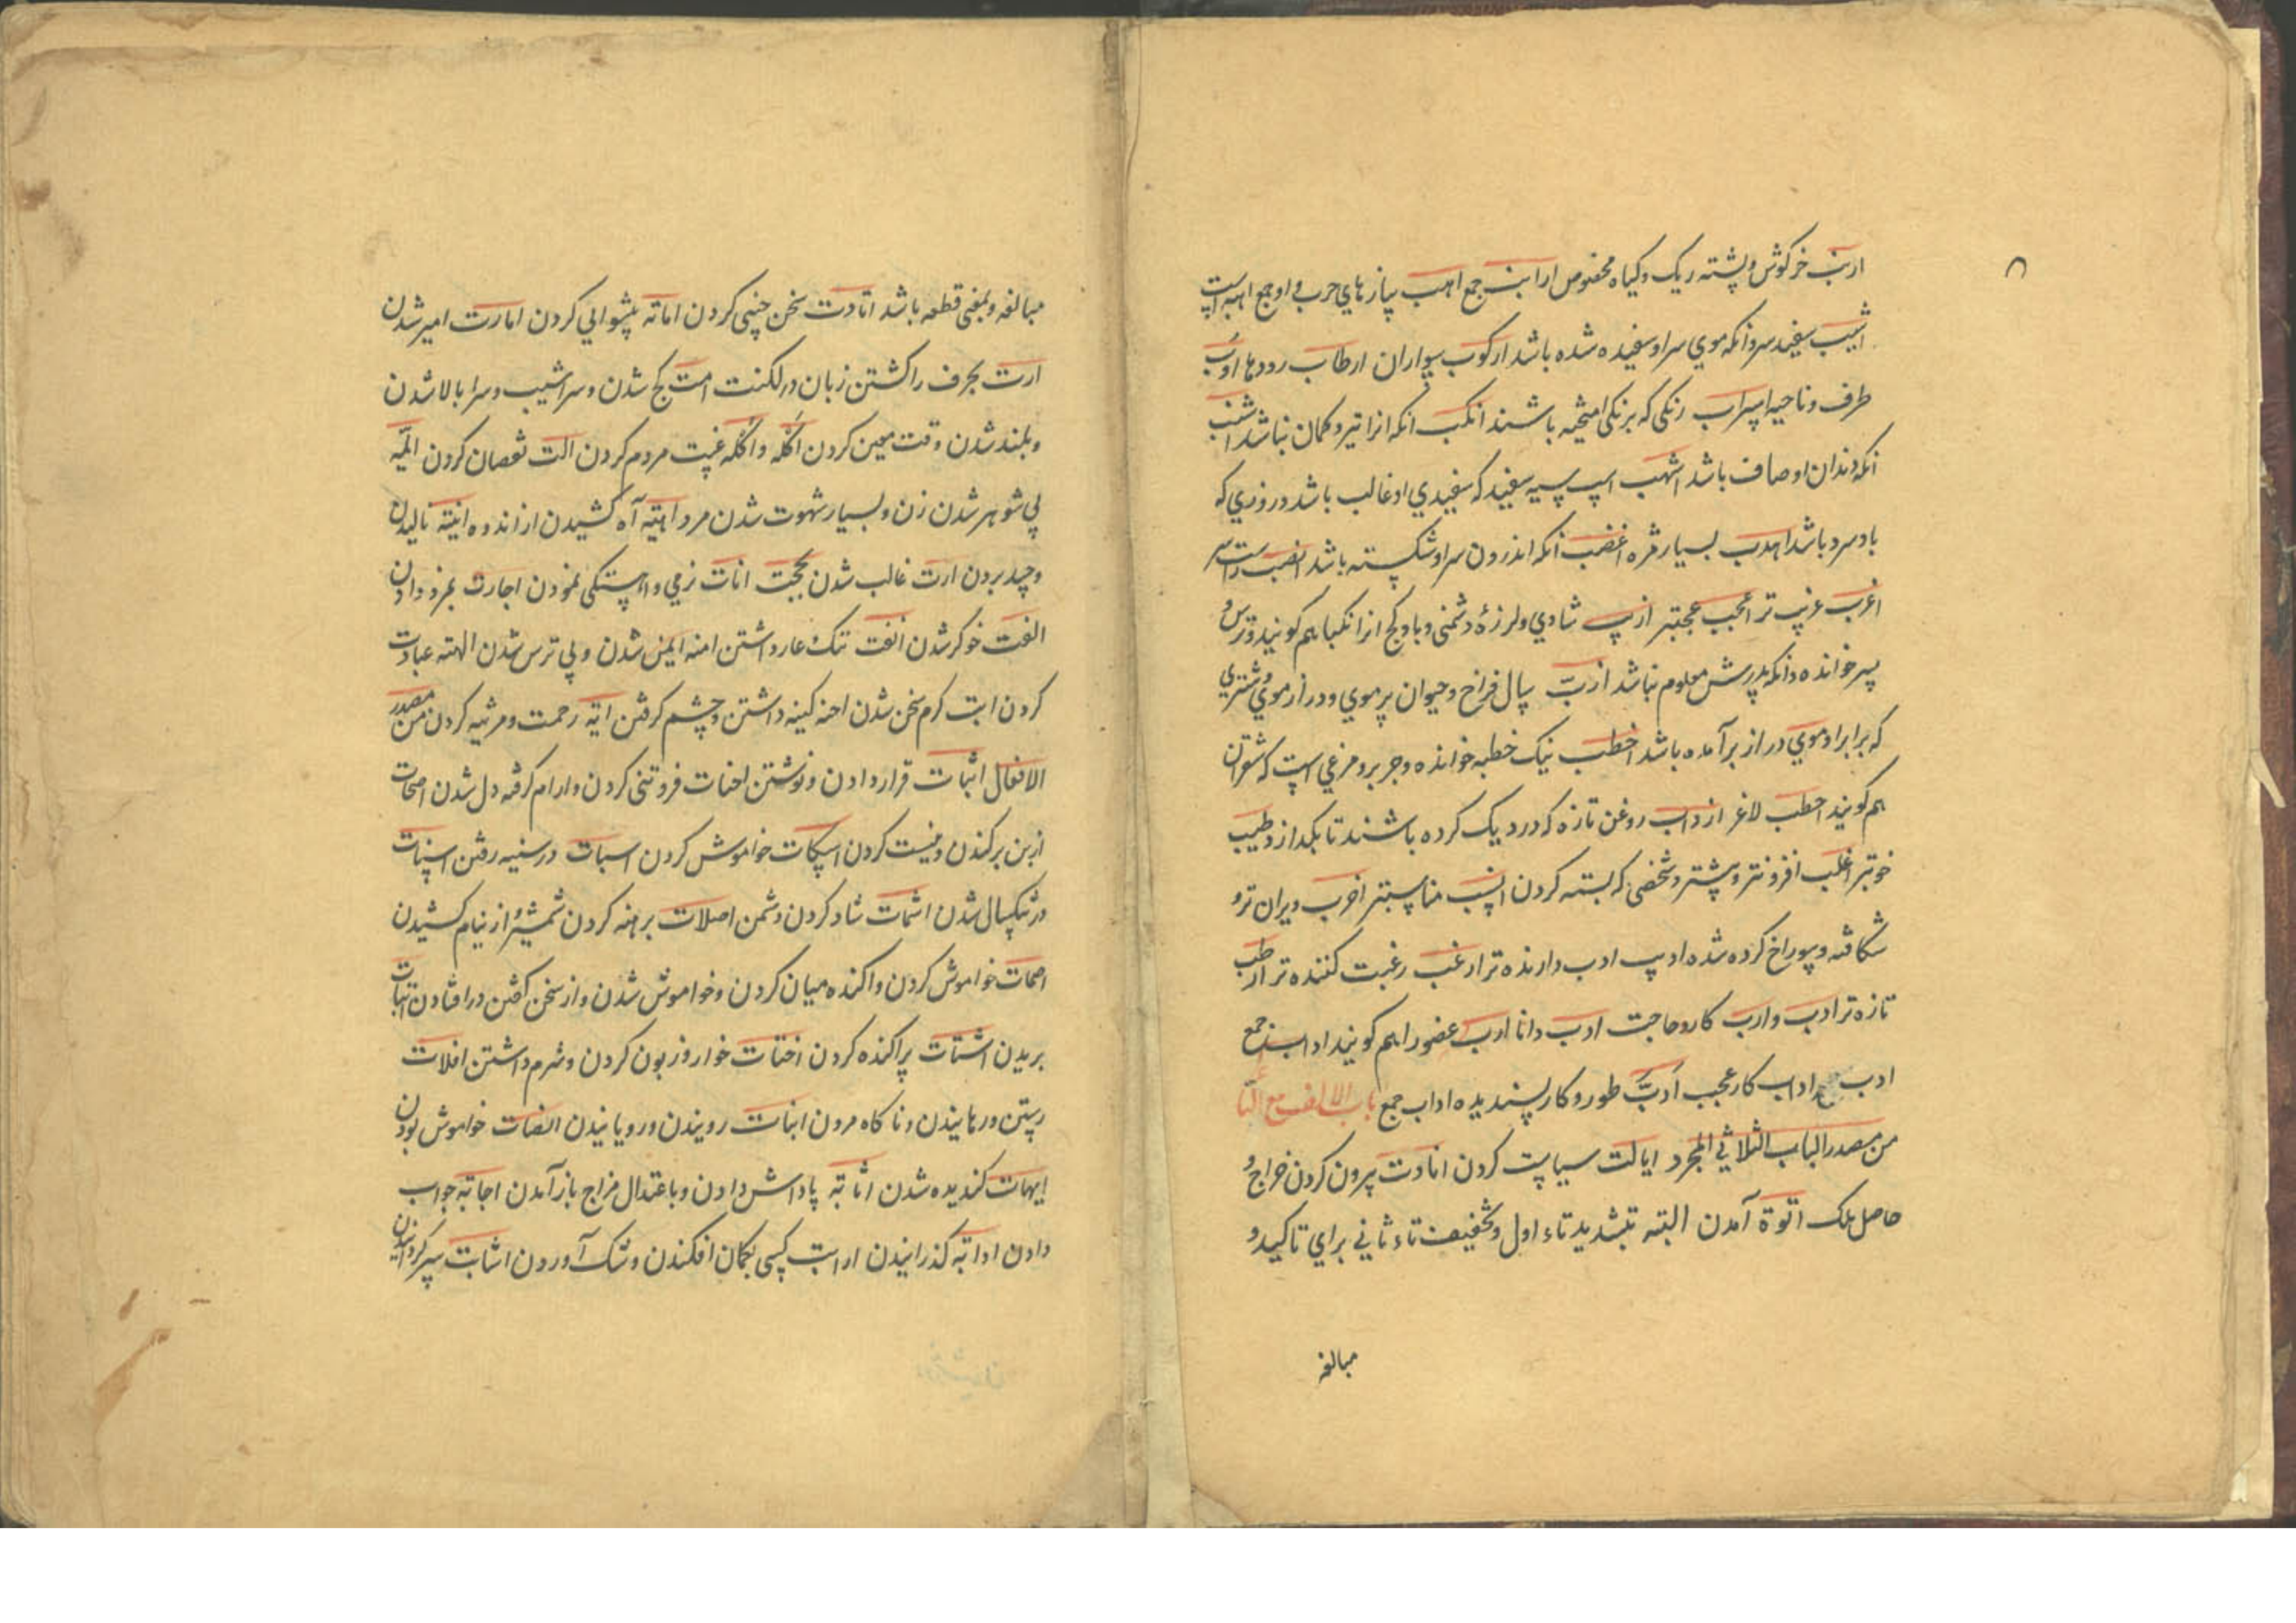 ارنب خرکوش و پشته ریک و کیاه مخصوص ارانب جمع اهب سازهای حرب و او جمع اهبه است
اشیب سفید سر و انکه موی سر او سفیده شده باشد ارکوب سواران ارطاب رودها اوب
طرف و ناحیه اسراب رنکی که برنکی امیخته باشند انکب انکه انرا تیر و کمان نباشد اشنب
انکه دندان او صاف باشد اشهب اسپ سیه سفید که سفیدی او غالب باشد و روزی که
باد سرد باشد اهدب بسیار مژه اغضب انکه اندرون سر او شکسته باشد انصب راست سر
اغرب غریب تر اعجب عجبتر ازیب شادی و لرزهٔ دشمنی و باد کج انرا نکبا هم کویند و ترس و
پسر خوانده و انکه پدرش معلوم نباشد ازبّ سال فراخ و حیوان پر موی و دراز موی و شتری
که برابر او موی دراز برآمده باشد اخطب نیک خطبه خوانده و چرب و مرغی است که شقران
هم کویند احطب لاغر ازداب روغن تازه که در دیک کرده باشند تا بکدازد اطیب
خوبتر اغلب افزونتر و بیشتر و شخصی که بسته کردن انسب مناسبتر اخرب ویران تر و
شکافته و سوراخ کرده شده ادیب ادب دارنده تر ارغب رغبت کننده تر ارطب
تازه تر ادب و ارب کار و حاجت ادب دانا ارب عضو را هم کویند اداب جمع
ادب اداب کار عجب ادبّ طور و کار پسندیده اداب جمع باب الالف مع التا
من مصدر الباب الثلاثی المجرد ایالت سیاست کردن اتادت بیرون کردن خراج و
حاصل ملک اتوة آمدن البته بتشدید تاء اول و تخفیف تاء ثانی برای تاکید و
مبالغه
مبالغه و بمعنی قطعه باشد اتادت سخن چینی کردن امامة پیشوایی کردن امارت امیر شدن
ارت بحرف را کشتن زبان در لکنت امت کج شدن و سراشیب و سرا بالا شدن
و بلند شدن وقت معین کردن اکله و اکله غیبت مردم کردن الت نقصان کردن ایمه
بی شوهر شدن زن و بسیار شهوت شدن مرد اهته آه کشیدن از اندوه انیته نالیدن
و حسد بردن ارت غالب شدن بحجت انات نرمی و اهستکی نمودن اجارت بمزد دادن
الفت خوکر شدن انفت ننک عار داشتن امنه ایمن شدن و بی ترس شدن الهته عبادت
کردن ابت کرم سخن شدن احنه کینه داشتن و چشم کرفتن ایه رحمت و مرثیه کردن من مصدر
الافعال اثبات قرار دادن و نوشتن اخبات فروتنی کردن و ارام کرفته دل شدن اصحات
از بن برکندن و نیست کردن اسکات خواموش کردن اسبات در سنبه رفتن اسنات
در تنکسال شدن اشمات شاد کردن دشمن اصلات برهنه کردن شمشیر و از نیام کشیدن
اصمات خواموش کردن و اکنده میان کردن و خواموش شدن و از سخن کفتن در افتادن انبات
بریدن اشتات پراکنده کردن اخفات خوار و زبون کردن و شرم داشتن افلات
رستن و رهانیدن و ناکاه مردن انبات رویندن و رویانیدن انصات خواموش بودن
ایهات کندیده شدن اثابة پاداش دادن و باعتدال مزاج باز آمدن اجابة جواب
دادن اذابة کذرانیدن ارابت کسی بکمان افکندن و شک آوردن اشابت سپر کردانیدن